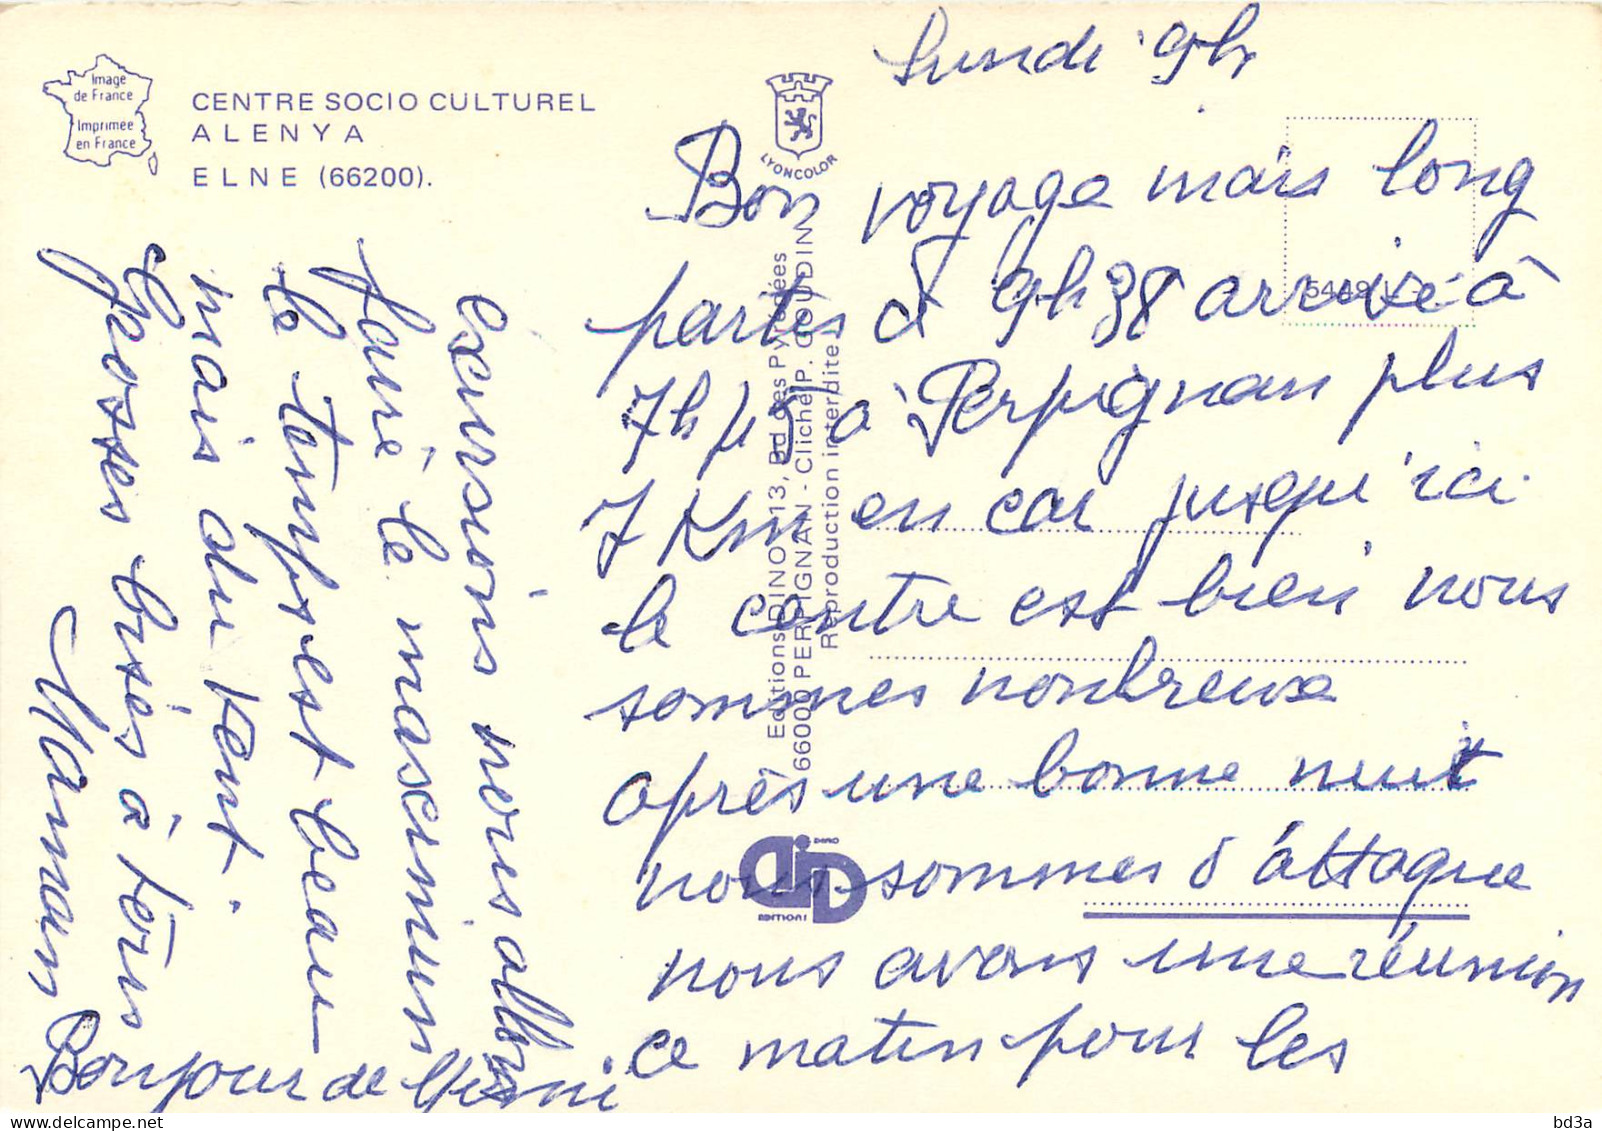 Image
de France
Imprimée
en France
CENTRE SOCIO CULTUREL
ALENYA
ELNE (66200).
LYONCOLOR
Editions DINO 13, Bd des Pyrénées
66000 PERPIGNAN - Cliché P. GOUDIN
Reproduction interdite
DINO
EDITIONS
Lundi 9h
Bon voyage mais long
partis à 9h38 arrivé à
7h45 à Perpignan plus
7 Km en car jusqu'ici
le centre est bien nous
sommes nombreux
après une bonne nuit
nous sommes d'attaque
nous avons une réunion
ce matin pour les
excursions nous allons
faire le maximum
le temps est beau
mais du vent.
Grosses bises à tous
Maman
Bonjour de